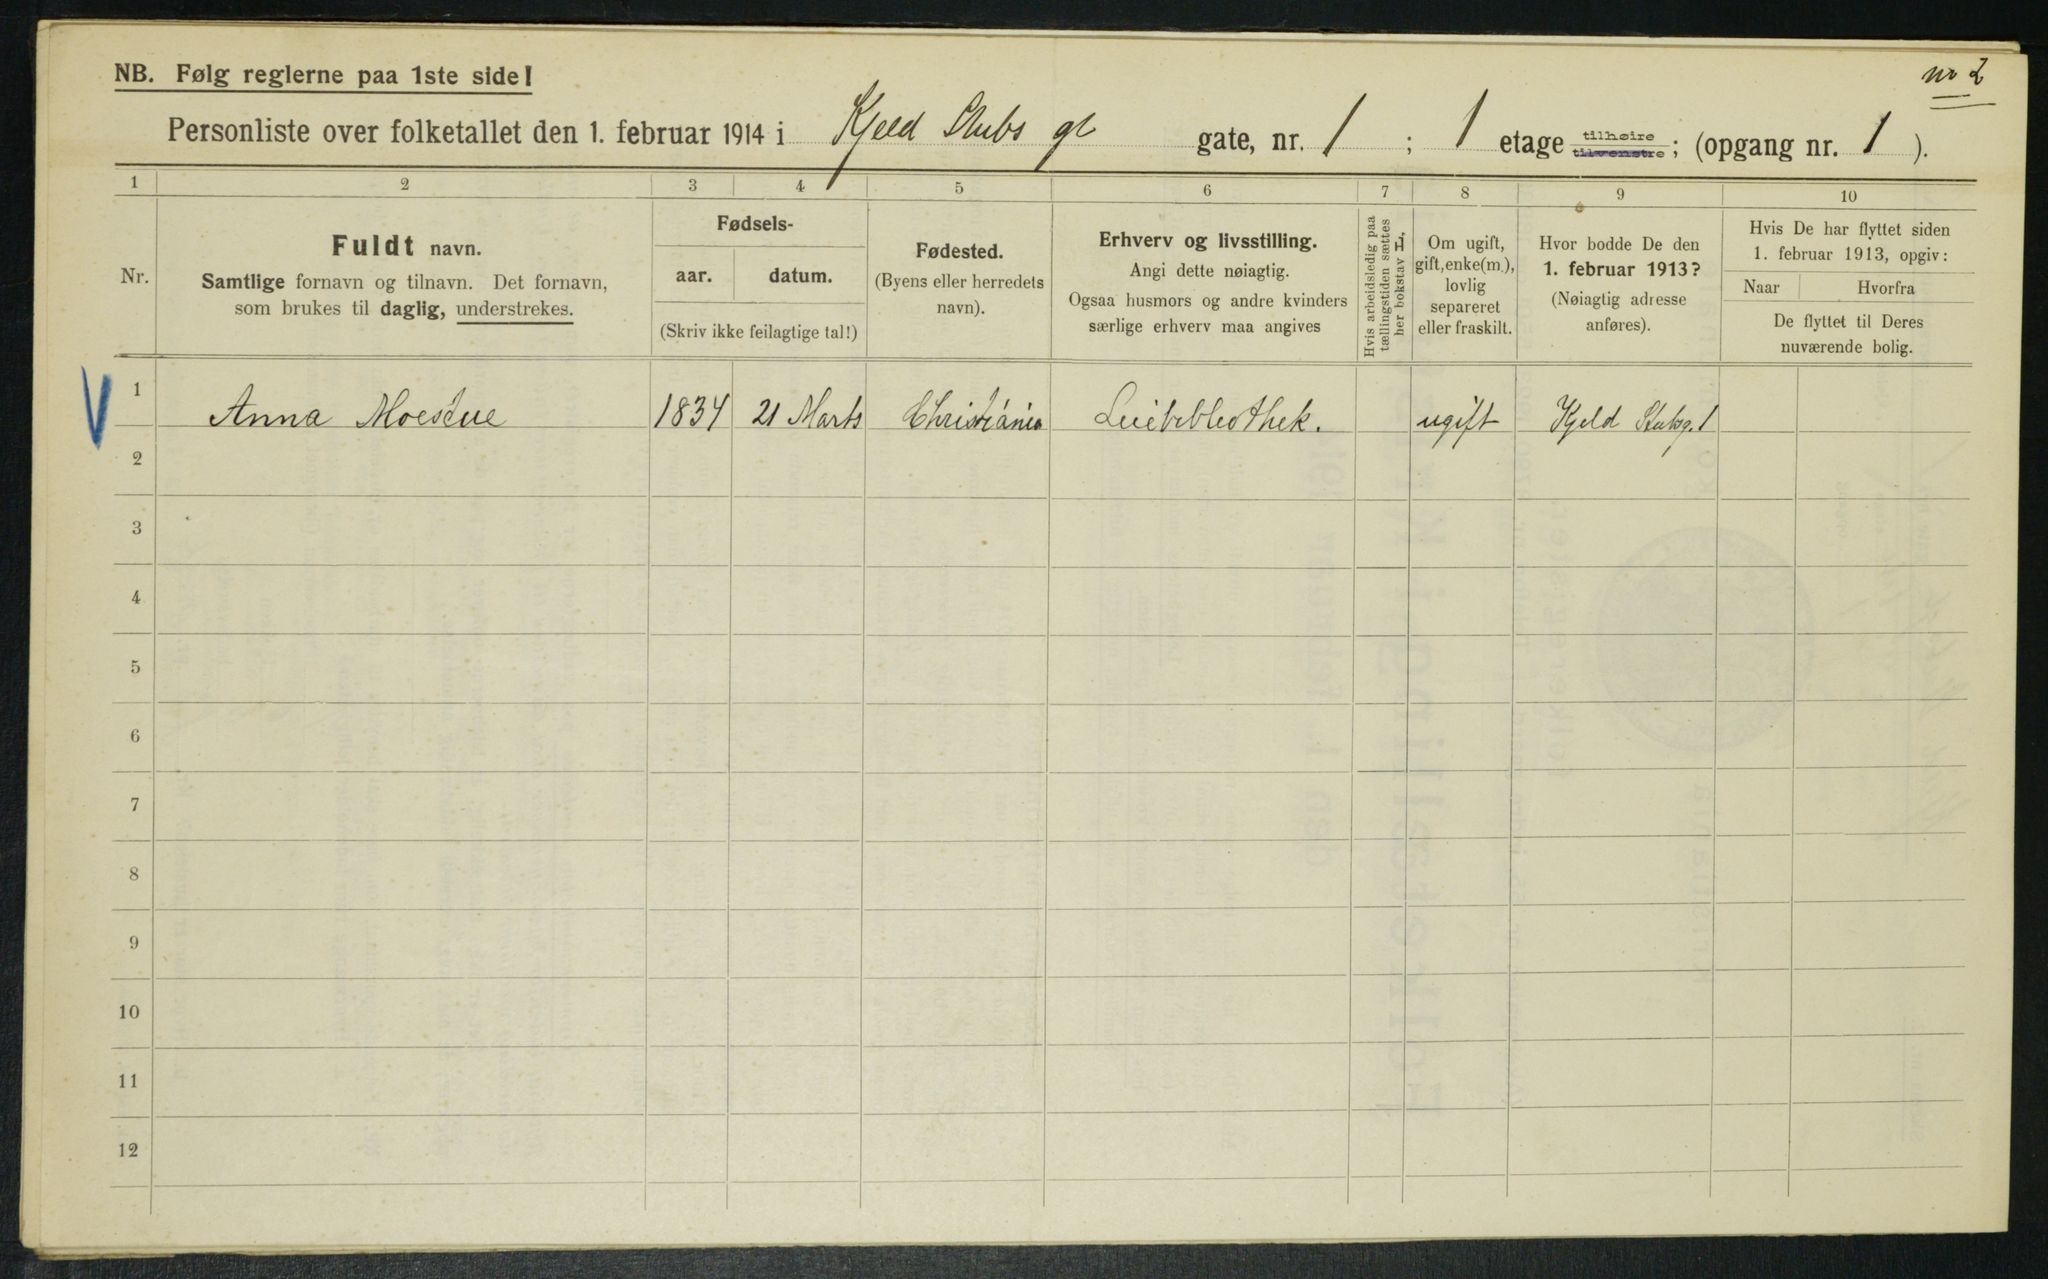 nr 2
NB. Følg reglerne paa 1ste side!
Personliste over folketallet den 1. februar 1914 i Kjeld Stubs gt gate, nr. 1 ; 1 etage tilhøire tilvenstre; (opgang nr. 1 ).
1 2 3 4 5 6 7 8 9 10
Nr.
Fuldt navn.
Samtlige fornavn og tilnavn. Det fornavn,
som brukes til daglig, understrekes.
Fødsels-
aar. datum.
(Skriv ikke feilagtige tal!)
Fødested.
(Byens eller herredets
navn).
Erhverv og livsstilling.
Angi dette nøiagtig.
Ogsaa husmors og andre kvinders
særlige erhverv maa angives
Hvis arbeidsledig paa
tællingstiden sættes
her bokstav L,
Om ugift,
gift, enke(m.),
lovlig
separeret
eller fraskilt.
Hvor bodde De den
1. februar 1913?
(Nøiagtig adresse
anføres).
Hvis De har flyttet siden
1. februar 1913, opgiv:
Naar Hvorfra
De flyttet til Deres
nuværende bolig.
1 Anna Moestue 1834 21 Marts Christiania Leiebibliothek. ugift Kjeld Stubsg. 1
2
3
4
5
6
7
8
9
10
11
12